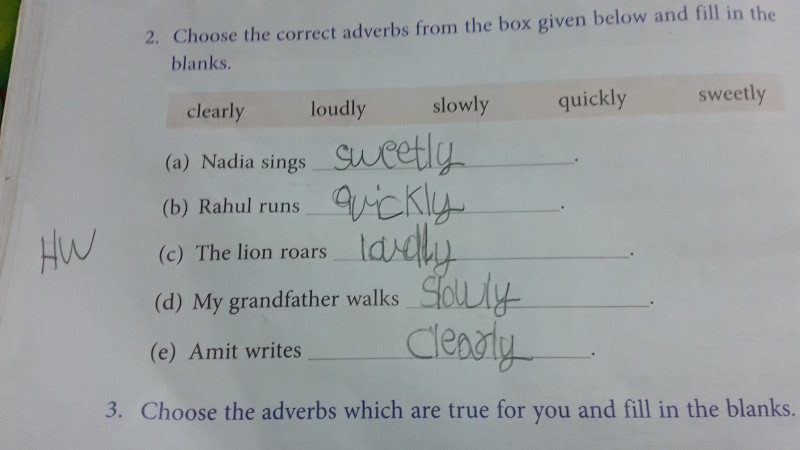 2. Choose the correct adverbs from the box given below and fill in the
blanks.
clearly loudly slowly quickly sweetly
(a) Nadia sings sweetly.
(b) Rahul runs quickly.
HW
(c) The lion roars loudly.
(d) My grandfather walks slowly.
(e) Amit writes Clearly.
3. Choose the adverbs which are true for you and fill in the blanks.